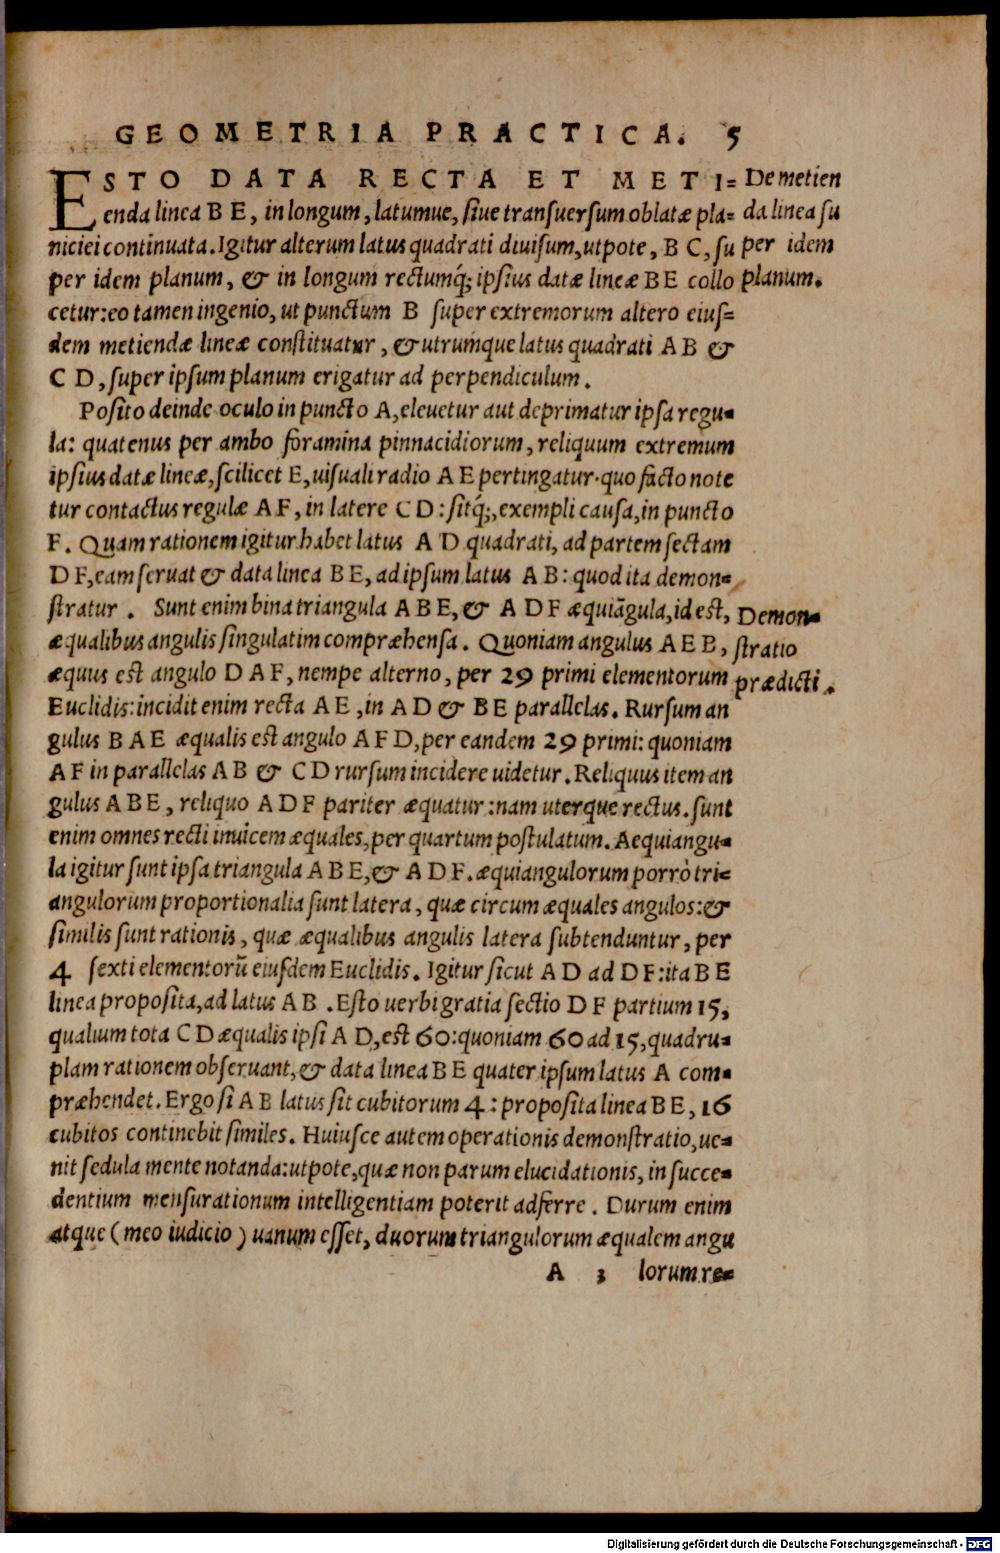 GEOMETRIA PRACTICA. 5
ESTO DATA RECTA ET METI=
enda linea BE, in longum, latumue, siue transuersum oblatæ pla=
niciei continuata. Igitur alterum latus quadrati diuisum, utpote, BC, su
per idem planum, & in longum rectumq́; ipsius datæ lineæ BE collo
cetur: eo tamen ingenio, ut punctum B super extremorum altero eius=
dem metiendæ lineæ constituatur, & utrumque latus quadrati AB &
CD, super ipsum planum erigatur ad perpendiculum.
De metien
da linea su
per idem
planum.
Posito deinde oculo in puncto A, eleuetur aut deprimatur ipsa regu=
la: quatenus per ambo foramina pinnacidiorum, reliquum extremum
ipsius datæ lineæ, scilicet E, uisuali radio AE pertingatur. quo facto note
tur contactus regulæ AF, in latere CD: sitq́;, exempli causa, in puncto
F. Quam rationem igitur habet latus AD quadrati, ad partem sectam
DF, eam seruat & data linea BE, ad ipsum latus AB: quod ita demon=
stratur. Sunt enim bina triangula ABE, & ADF æquiāgula, id est,
æqualibus angulis singulatim compræhensa. Quoniam angulus AEB,
æquus est angulo DAF, nempe alterno, per 29 primi elementorum
Euclidis: incidit enim recta AE, in AD & BE parallelas. Rursum an
gulus BAE æqualis est angulo AFD, per eandem 29 primi: quoniam
AF in parallelas AB & CD rursum incidere uidetur. Reliquus item an
gulus ABE, reliquo ADF pariter æquatur: nam uterque rectus. sunt
enim omnes recti inuicem æquales, per quartum postulatum. Aequiangu=
la igitur sunt ipsa triangula ABE, & ADF. æquiangulorum porrò tri=
angulorum proportionalia sunt latera, quæ circum æquales angulos: &
similis sunt rationis, quæ æqualibus angulis latera subtenduntur, per
4 sexti elementorū eiusdem Euclidis. Igitur sicut AD ad DF: ita BE
linea proposita, ad latus AB. Esto uerbi gratia sectio DF partium 15,
qualium tota CD æqualis ipsi AD, est 60: quoniam 60 ad 15, quadru=
plam rationem obseruant, & data linea BE quater ipsum latus A com=
præhendet. Ergo si AB latus sit cubitorum 4: proposita linea BE, 16
cubitos continebit similes. Huiusce autem operationis demonstratio, ue=
nit sedula mente notanda: utpote, quæ non parum elucidationis, in succe=
dentium mensurationum intelligentiam poterit adferre. Durum enim
atque (meo iudicio) uanum esset, duorum triangulorum æqualem angu
Demon=
stratio
prædicti.
A 3 lorum re=
Digitalisierung gefördert durch die Deutsche Forschungsgemeinschaft - DFG